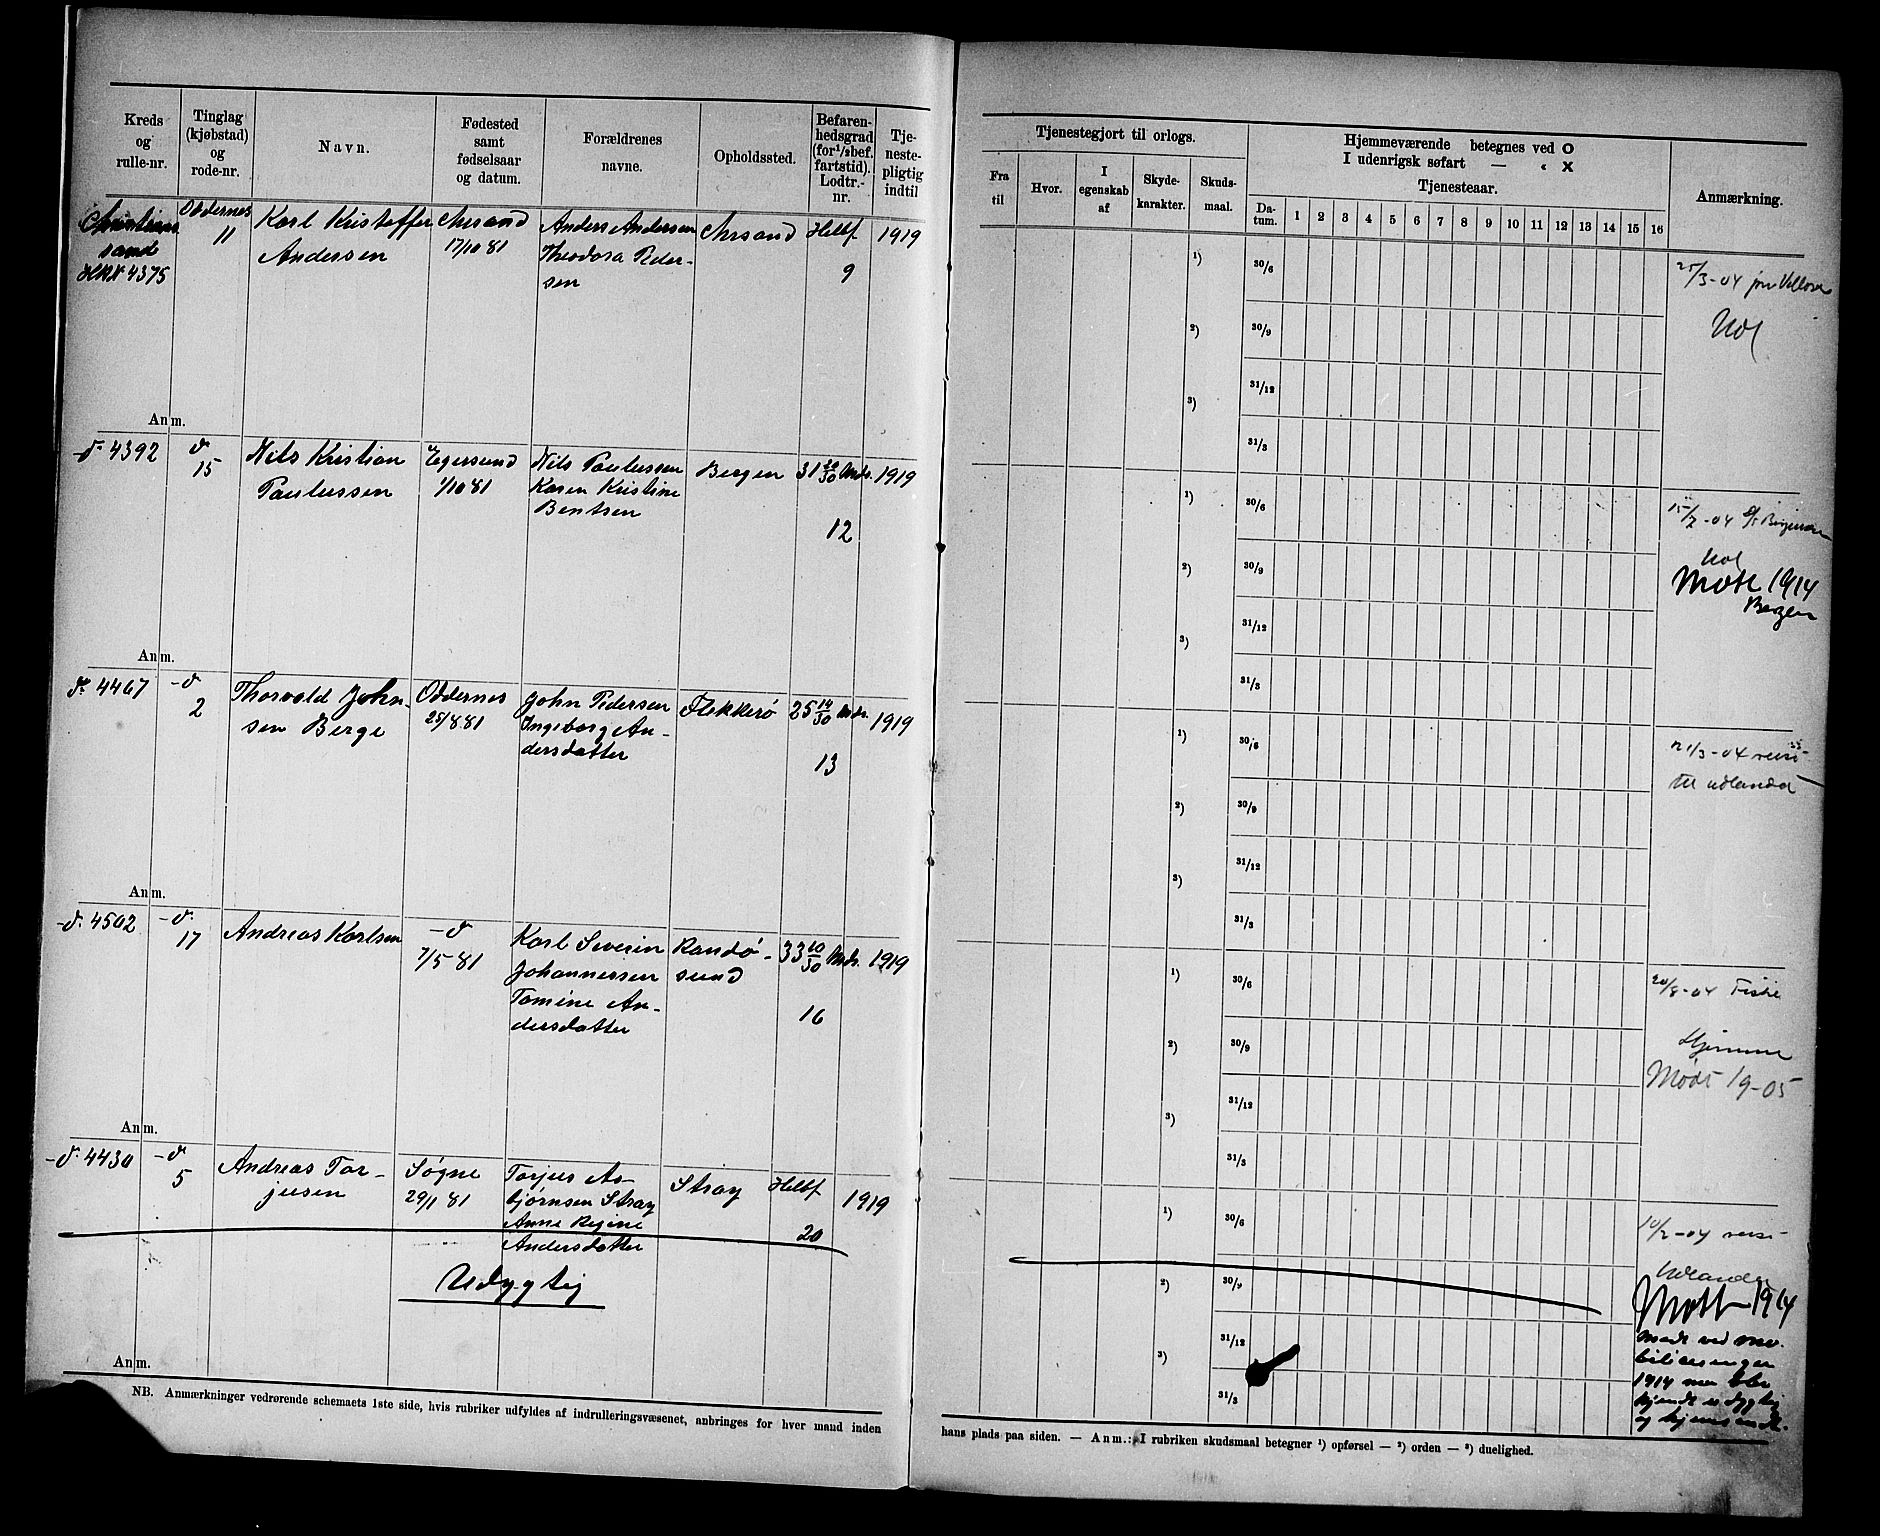 Kreds
og
rulle-nr.
Tinglag
(kjøbstad)
og
rode-nr.
Navn.
Fødested
samt
fødselsaar
og datum.
Forældrenes
navne.
Opholdssted.
Befaren-
hedsgrad
(for ½bef.
fartstid).
Lodtr.-
nr.
Tje-
neste-
pligtig
indtil
Tjenestegjort til orlogs.
Fra
til
Hvor.
I
egenskab
af
Skyde-
karakter.
Skuds-
maal.
Hjemmeværende betegnes ved O
I udenrigsk søfart — « X
Tjenesteaar.
Da-
tum.
1 2 3 4 5 6 7 8 9 10 11 12 13 14 15 16
Anmærkning.
Christians
sand
4375
Oddernes
11
Karl Kristoffer
Andersen
Chrsand
17/10 81
Anders Andersen
Theodora Peder-
sen
Chrsand
Helbf
9
1919
1) 30/6
2) 30/9
3) 31/12
31/3
25/3-04
Udl
Anm.
d. 4392
d
15
Nils Kristian
Paulussen
Egersund
1/10 81
Nils Paulussen
Karen Kristine
Bentsen
Bergen
31 20/30 Mdr.
12
1919
1) 30/6
2) 30/9
3) 31/12
31/3
15/2-04
Udl
Møtt 1914
Bergen
Anm.
d. 4467
-d
2
Thorvald John-
sen Berge
Oddernes
25/8 81
John Pedersen
Ingeborg An-
dersdatter
Flekkerø
25 14/30 Mdr.
13
1919
1) 30/6
2) 30/9
3) 31/12
31/3
21/3-04 reise
til udlandet
Anm.
-d. 4502
-d.
17
Andreas Karlsen
-d
7/5 81
Karl Severin
Johannessen
Tomine An-
dersdatter
Randø-
sund
33 10/30 Mdr.
16
1919
1) 30/6
2) 30/9
3) 31/12
31/3
20/8-04 Fiske
Hjemme
Mødt 19-05
Anm.
-d. 4430
-d
5
Andreas Tor-
jusen
Søgne
29/1 81
Torjus As-
bjørnsen Stray
Anne Regine
Andersdatter
Stray
Helbf
20
1919
Udygtig
1) 30/6
2) 30/9
3) 31/12
31/3
10/2-04 reise
Udlandet
Møtt 1914
Mødt ved mo-
biliseringen
1914 men ble
kjendt udygtig
og hjemsendt.
Anm.
NB. Anmærkninger vedrørende schemaets 1ste side, hvis rubriker udfyldes af indrulleringsvæsenet, anbringes for hver mand inden
hans plads paa siden. — Anm.: I rubriken skudsmaal betegner ¹) opførsel — ²) orden — ³) duelighed.